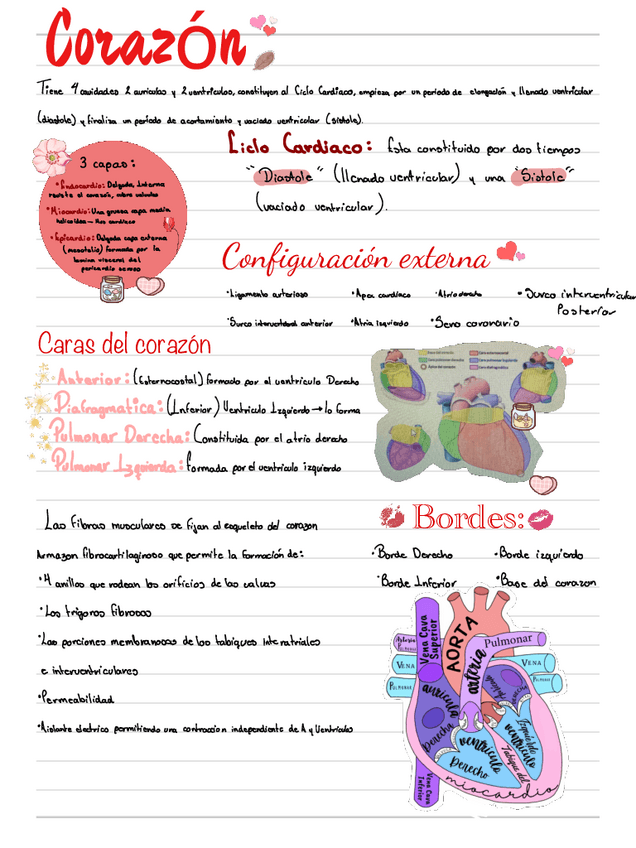 Corazón
Tiene 4 cavidades 2 auriculas y 2 ventriculos, constituyen al Ciclo Cardiaco, empieza por un periodo de elongación y llenado ventricular
(diastole) y finaliza un periodo de acortamiento y vaciado ventricular (sistole).
3 capas:
•Endocardio: Delgada, Interna
reviste el corazón, cubre valvulas
•Miocardio: Una gruesa capa media
helicoidea → Mus cardiaco
•Epicardio: Delgada capa externa
(mesotelio) formada por la
lamina visceral del
pericardio seroso
Ciclo Cardiaco: Esta constituido por dos tiempos
"Diastole" (llenado ventricular) y una "Sistole"
(vaciado ventricular).
Configuración externa
•Ligamento arterioso •Apex cardiaco •Atrio derecho •Surco interventricular
Posterior
•Surco interventricular anterior •Atrio Izquierdo •Seno coronario
Caras del corazón
Anterior: (Esternocostal) formado por el ventriculo Derecho
Diafragmatica: (Inferior) Ventriculo Izquierdo → lo forma
Pulmonar Derecha: Constituida por el atrio derecho
Pulmonar Izquierda: formada por el ventriculo izquierdo
Las fibras musculares se fijan al esqueleto del corazon
Armazon fibrocartilaginoso que permite la formación de:
•4 anillos que rodean los orificios de las valvas
•Los trigonos fibrosos
•Las porciones membranosas de los tabiques Interatriales
e interventriculares
•Permeabilidad
•Aislante electrico permitiendo una contraccion independiente de A y Ventriculos
Bordes:
•Borde Derecho •Borde izquierdo
•Borde Inferior •Base del corazon
Vena Cava
Superior
AORTA
arteria Pulmonar
Arteria
Pulmonar
VENA
PULMONAR
VENA
PULMONAR
auricula
Derecha
auricula
Izquierda
ventriculo
Izquierdo
ventriculo
Derecho
Tabique del
miocardio
Vena Cava
Inferior